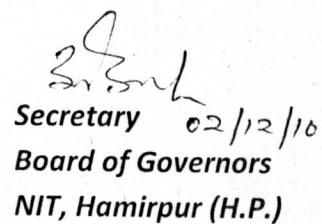 Secretary 02/12/10
Board of Governors
NIT, Hamirpur (H.P.)